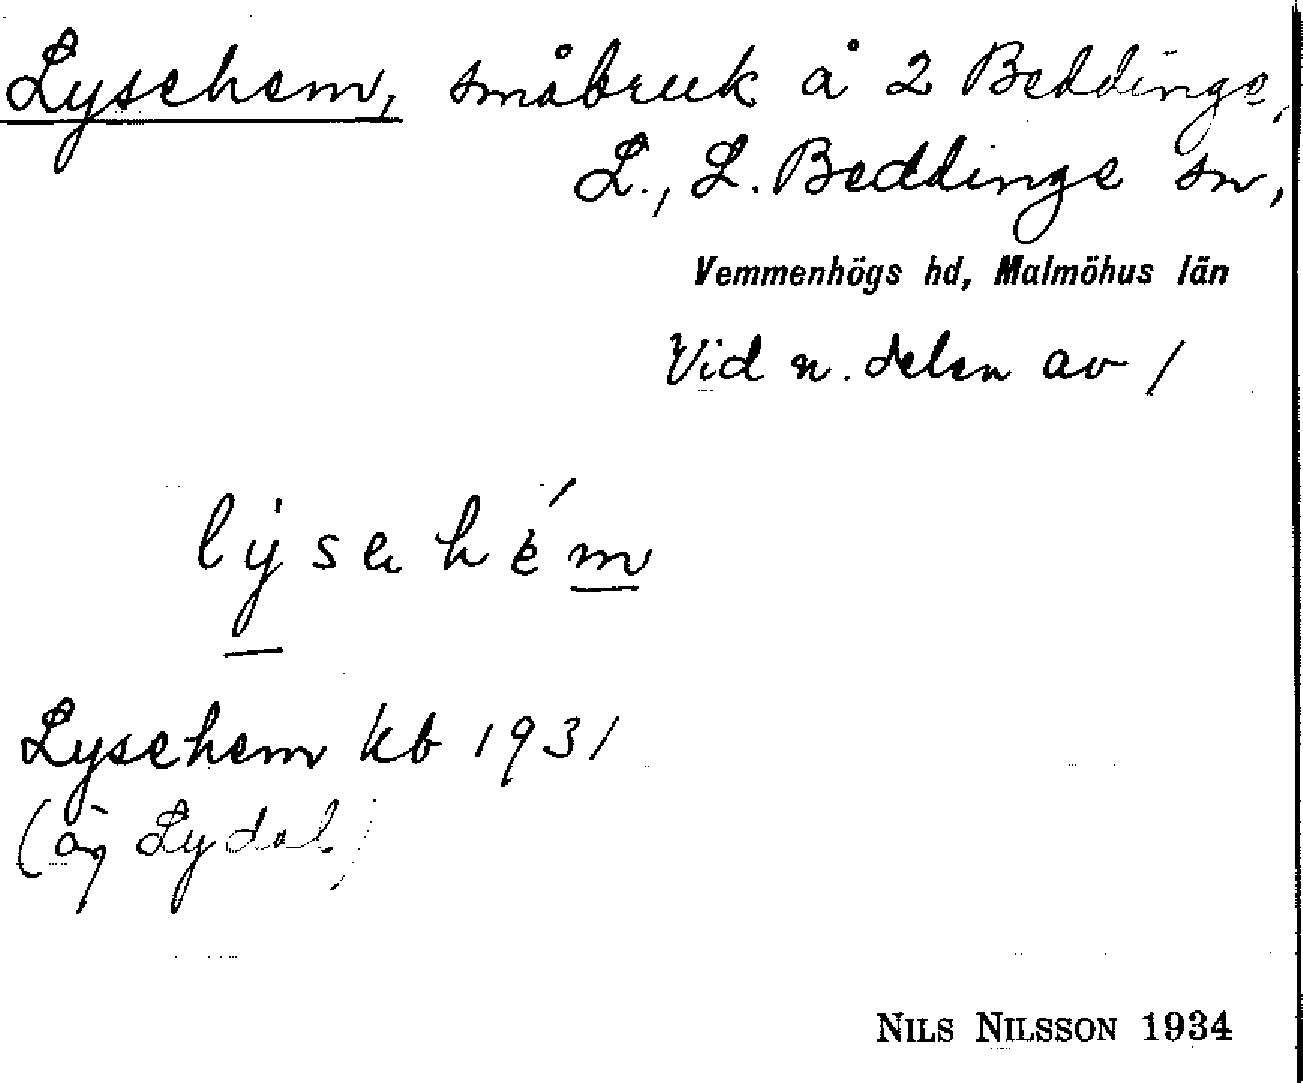 Lysehem, småbruk å 2 Beddinge,
L., L. Beddinge sn,
Vemmenhögs hd, Malmöhus län
Vid n. delen av /
lysehém
Lysehem kb 1931
(äg Lydal.)
NILS NILSSON 1934